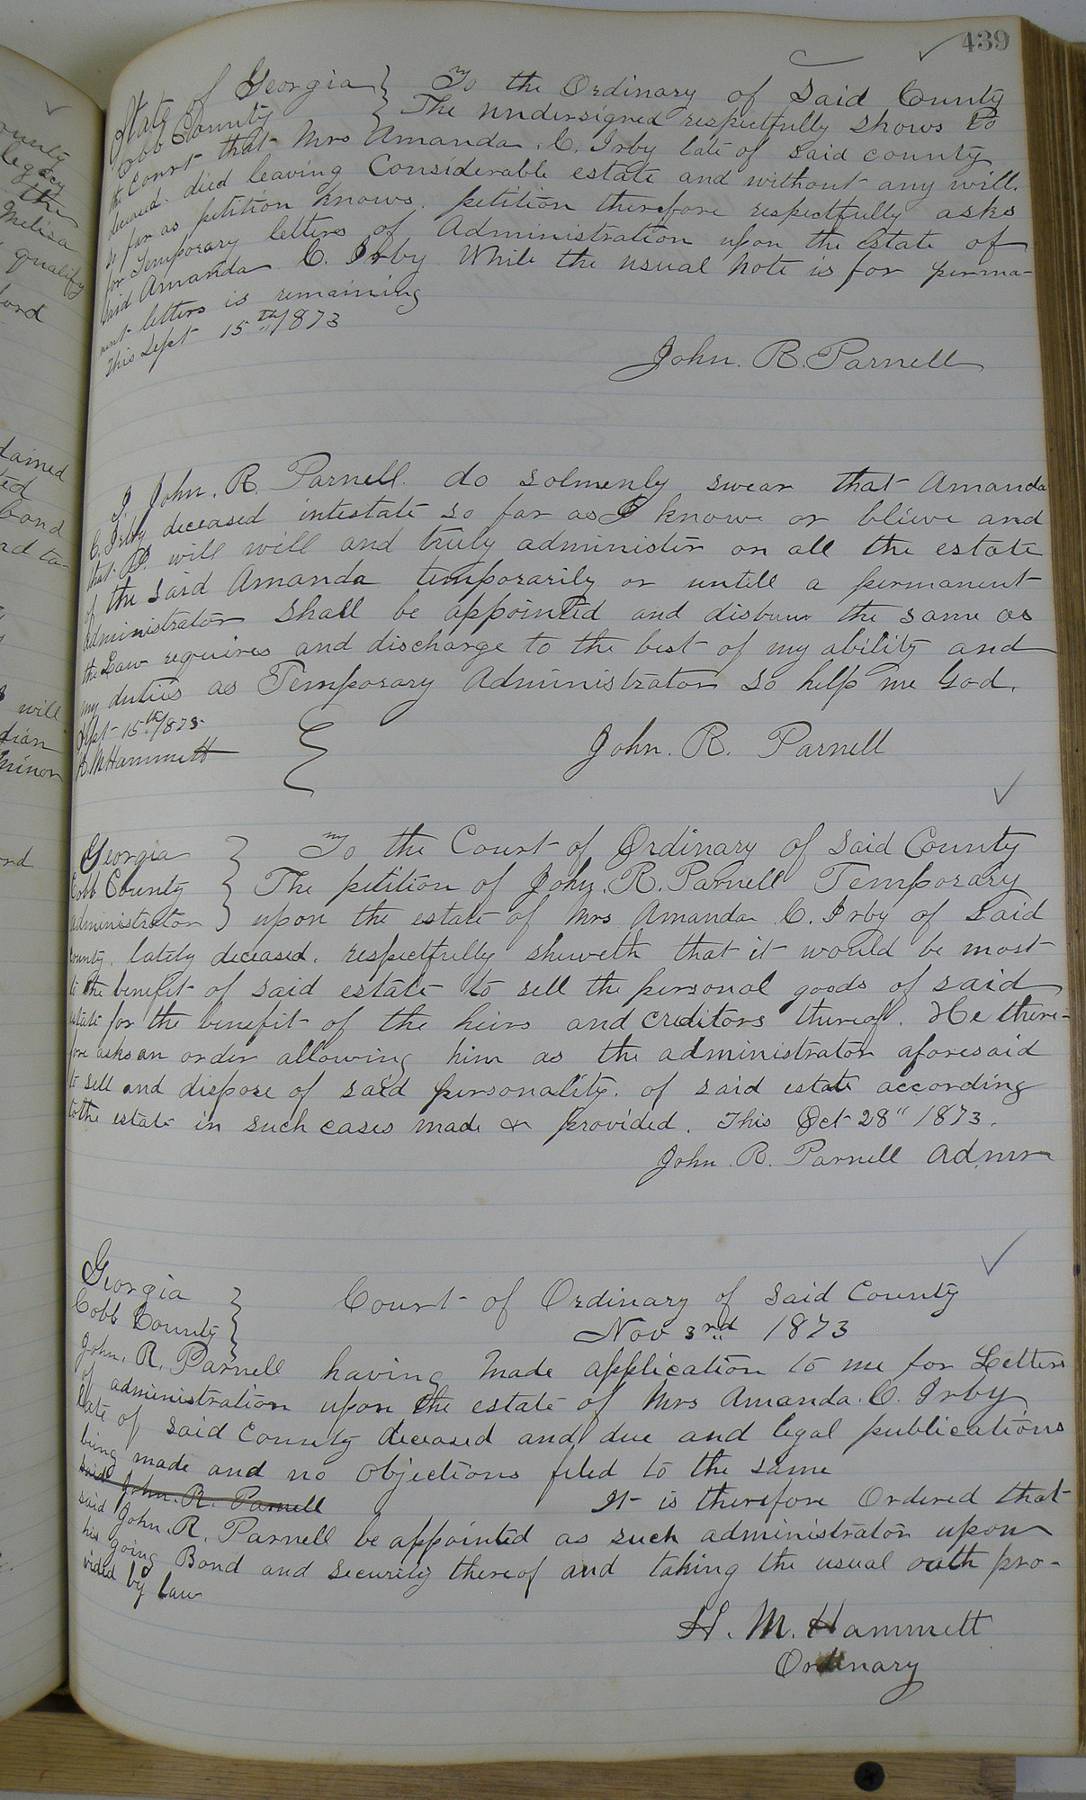 439
State of Georgia } To the Ordinary of Said County
Cobb County } The undersigned respectfully shows to
the Court that Mrs Amanda. C. Irby late of said county
deceased. died leaving Considerable estate and without any will.
so far as petition knows. petition therefore respectfully asks
for Temporary letters of Administration upon the Estate of
said Amanda C. Irby While the usual note is for perma-
nent letters is remaining
This Sept 15th 1873
John. R. Parnell
I. John. R. Parnell. do solmenly swear that Amanda
C. Irby deceased intestate so far as I know or blieve and
that I will will and truly administer on all the estate
of the said Amanda temporarily or untill a permanent
administrator shall be appointed and disburse the same as
the Law requires and discharge to the best of my ability and
my duties as Temporary Administrator so help me God.
Sept 15th/1873
H. M Hammett
John. R. Parnell
Georgia } To the Court of Ordinary of said County
Cobb County } The petition of John. R. Parnell Temporary
administrator ) upon the estate of Mrs Amanda C. Irby of said
county. lately deceased. respectfully sheweth that it would be most
to the benefit of said estate to sell the personal goods of said
estate for the benefit of the heirs and creditors thereof. He there-
fore asks an order allowing him as the administrator aforesaid
to sell and dispose of said personality. of said estate according
to the estate in such cases made & provided. This Oct 28" 1873.
John. R. Parnell Admr
Georgia
Cobb County } Court of Ordinary of said County
Nov 3rd 1873
John. R. Parnell having made application to me for Letters
of administration upon the estate of Mrs Amanda. C. Irby
late of said County deceased and due and legal publications
being made and no objections filed to the same
said John. R. Parnell It is therefore Ordered that
said John. R. Parnell be appointed as such administrator upon
his going Bond and security thereof and taking the usual oath pro-
vided by law
H. M. Hammett
Ordinary
ounty
legacy
the
Melissa
qualify
ond
dained
ted
bond
nd ta-
will
dian
minor
ord